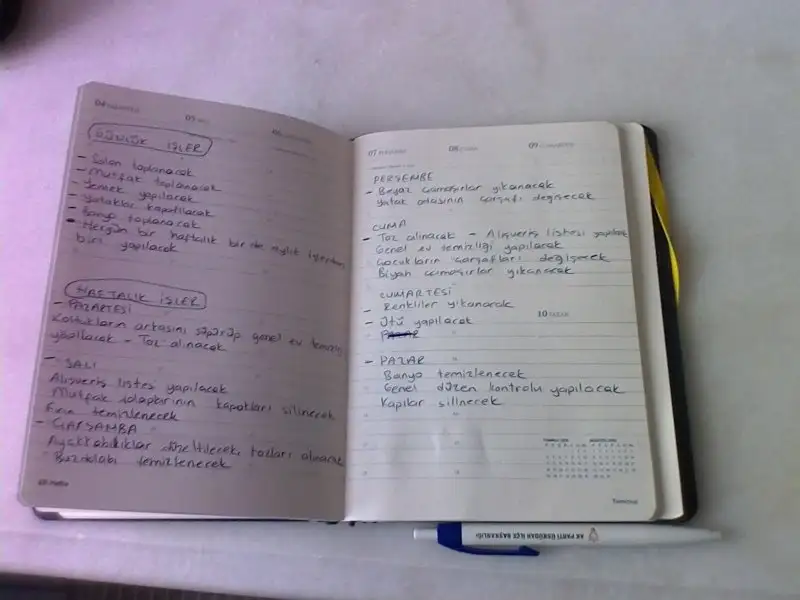 04
05
06
GÜNLÜK İŞLER
- Salon toplanacak
- Mutfak toplanacak
- Yemek yapılacak
- Yataklar kapatılacak
- Banyo toplanacak
- Hergün bir haftalık bir de aylık işlerden
biri yapılacak
HAFTALIK İŞLER
- PAZARTESİ
Koltukların arkasını süpürüp genel ev temizliği
yapılacak - Toz alınacak
- SALI
Alışveriş listesi yapılacak
Mutfak dolaplarının kapakları silinecek
Fırın temizlenecek
- ÇARŞAMBA
Ayakkabılıklar düzeltilecek, tozları alınacak
Buzdolabı temizlenecek
07
08
09
PERŞEMBE
- Beyaz çamaşırlar yıkanacak
Yatak odasının çarşafı değişecek
CUMA
- Toz alınacak - Alışveriş listesi yapılacak
Genel ev temizliği yapılacak
Çocukların çarşafları değişecek
Siyah çamaşırlar yıkanacak
CUMARTESİ
- Renkliler yıkanacak
- Ütü yapılacak
10 PAZAR
- PAZAR
Banyo temizlenecek
Genel düzen kontrolü yapılacak
Kapılar silinecek
Temmuz
AK PARTİ ÜSKÜDAR İLÇE BAŞKANLIĞI